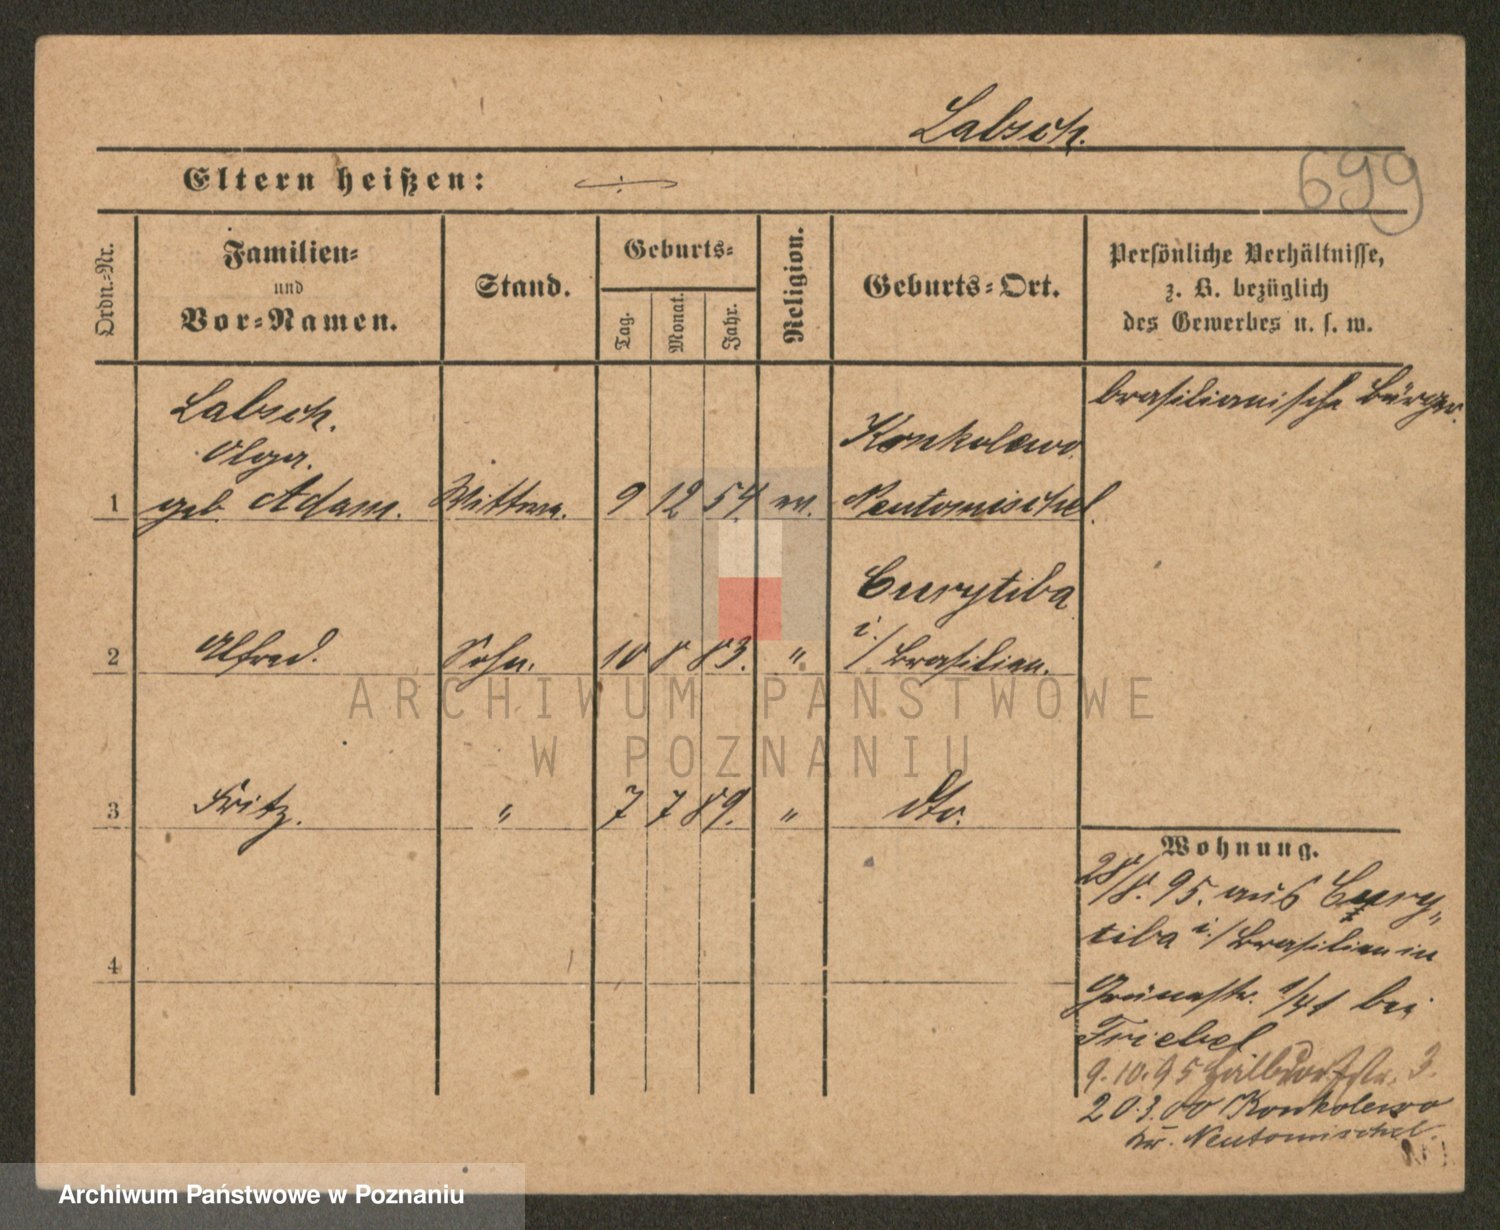 Labsch.
699
Eltern heißen: ÷
Ordn.-Nr.
Familien-
und
Vor-Namen.
Stand.
Geburts-
Tag.
Monat.
Jahr.
Religion.
Geburts-Ort.
Persönliche Verhältnisse,
z. B. bezüglich
des Gewerbes u. s. w.
brasilianische Bürger.
Labsch.
Olga.
geb. Adam.
1
Wittwe.
9 12 54. ev.
Konkolewo.
Neutomischel.
2 Alfred. Sohn. 10 8 83. "
Curytiba
i./Brasilien.
3 Fritz. " 7 7 89. " dto.
4
Wohnung.
28/8. 95. aus Cury-
tiba i./Brasilien in
Grünestr. 1/41 bei
Friebel
9.10.95 Halbdorfstr. 3.
20.3.00 Konkolewo
Kr. Neutomischel.
ARCHIWUM PAŃSTWOWE
W POZNANIU
Archiwum Państwowe w Poznaniu